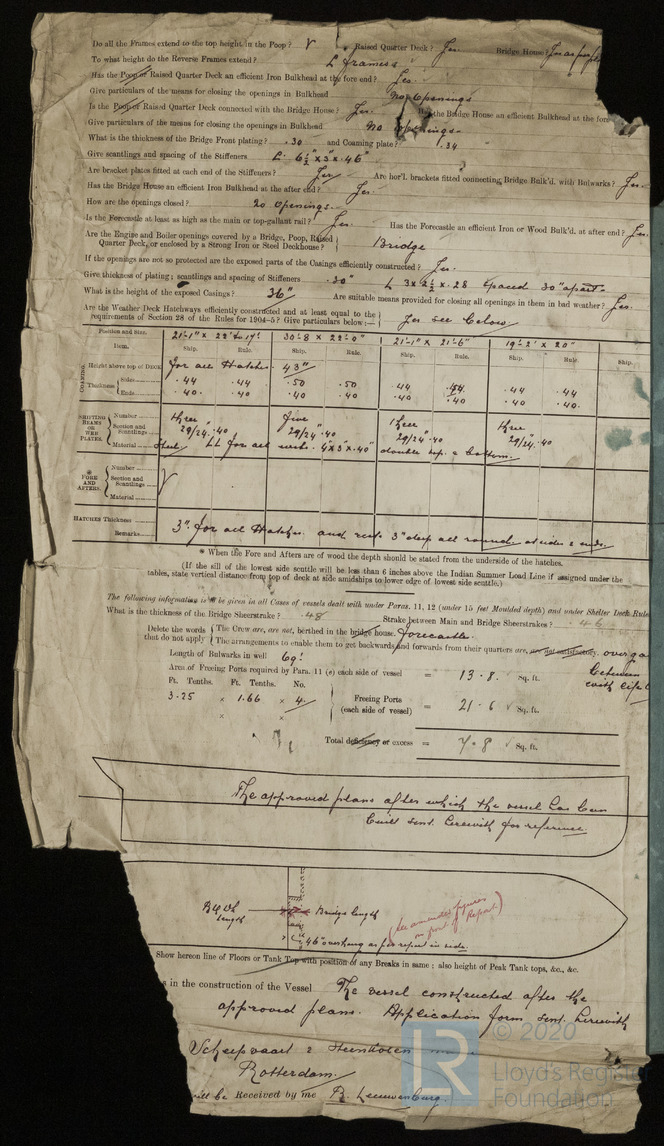 Do all the Frames extend to the top height in the Poop? √ Raised Quarter Deck? Yes. Bridge House?
To what height do the Reverse Frames extend? L frames
Has the Poop or Raised Quarter Deck an efficient Iron Bulkhead at the fore end? Yes.
Give particulars of the means for closing the openings in Bulkhead no openings
Is the Poop or Raised Quarter Deck connected with the Bridge House? Yes. Has the Bridge House an efficient Bulkhead at the fore
Give particulars of the means for closing the openings in Bulkhead no openings.
What is the thickness of the Bridge Front plating? .30 and Coaming plate? .34
Give scantlings and spacing of the Stiffeners L. 6½"x3"x.46"
Are bracket plates fitted at each end of the Stiffeners? Yes Are hor'l. brackets fitted connecting Bridge Bulk'd. with Bulwarks? Yes.
Has the Bridge House an efficient Iron Bulkhead at the after end? Yes.
How are the openings closed? no openings.
Is the Forecastle at least as high as the main or top-gallant rail? Yes. Has the Forecastle an efficient Iron or Wood Bulk'd. at after end? Yes.
Are the Engine and Boiler openings covered by a Bridge, Poop, Raised
Quarter Deck, or enclosed by a Strong Iron or Steel Deckhouse? Bridge
If the openings are not so protected are the exposed parts of the Casings efficiently constructed? Yes.
Give thickness of plating; scantlings and spacing of Stiffeners .30" L 3x2½x.28 spaced 30" apart
What is the height of the exposed Casings? 36" Are suitable means provided for closing all openings in them in bad weather? Yes.
Are the Weather Deck Hatchways efficiently constructed and at least equal to the
requirements of Section 28 of the Rules for 1904-5? Give particulars below:— Yes see below
Position and Size. 21'-1" x 22' to 17' 30'-8 x 22'-0" 21'-1" x 21'-6" 19'-2' x 20"
Item. Ship. Rule. Ship. Rule. Ship. Rule. Ship. Rule. Ship.
COAMING. Height above top of DECK for all Hatches 43"
Thickness Sides .44 .44 .50 .50 .44 .44 .44 .44
Ends .40 .40 .40 .40 .40 .40 .40 .40
SHIFTING BEAMS OR WEB PLATES. Number three five three three
Section and Scantlings 29/24".40 29/24".40 29/24".40 29/24".40
Material Steel LL for all webs. 4"x3"x.40" double top & bottom.
* FORE AND AFTERS. Number
Section and Scantlings √
Material
HATCHES Thickness 3". for all Hatches and rest 3" deep all round at sides & ends.
Remarks
* When the Fore and Afters are of wood the depth should be stated from the underside of the hatches.
(If the sill of the lowest side scuttle will be less than 6 inches above the Indian Summer Load Line if assigned under the
tables, state vertical distance from top of deck at side amidships to lower edge of lowest side scuttle.)
The following information is to be given in all Cases of vessels dealt with under Paras. 11, 12 (under 15 feet Moulded depth) and under Shelter Deck Rule
What is the thickness of the Bridge Sheerstrake? .48 Strake between Main and Bridge Sheerstrakes? .46
Delete the words that do not apply The Crew are, are not, berthed in the bridge house. forecastle.
The arrangements to enable them to get backwards and forwards from their quarters are, are not satisfactory. over
between
with
Length of Bulwarks in well 69!
Area of Freeing Ports required by Para. 11 (e) each side of vessel = 13.8. Sq. ft.
Ft. Tenths. Ft. Tenths. No.
3.25 x 1.66 x 4 Freeing Ports (each side of vessel) = 21.6 √ Sq. ft.
x x
Total deficiency or excess = 7.8 √ Sq. ft.
The approved plans after which the vessel has been
built sent herewith for reference.
length Bridge length
46" overhang as per report in red.
(See amended figures
on front of Report)
Show hereon line of Floors or Tank Top with position of any Breaks in same; also height of Peak Tank tops, &c., &c.
s in the construction of the Vessel The vessel constructed after the
approved plans. Application form sent herewith
Scheepvaart & Steenkolen
Rotterdam.
will be Received by me B. Leeuwenburg.
LR
© 2020
Lloyd's Register
Foundation